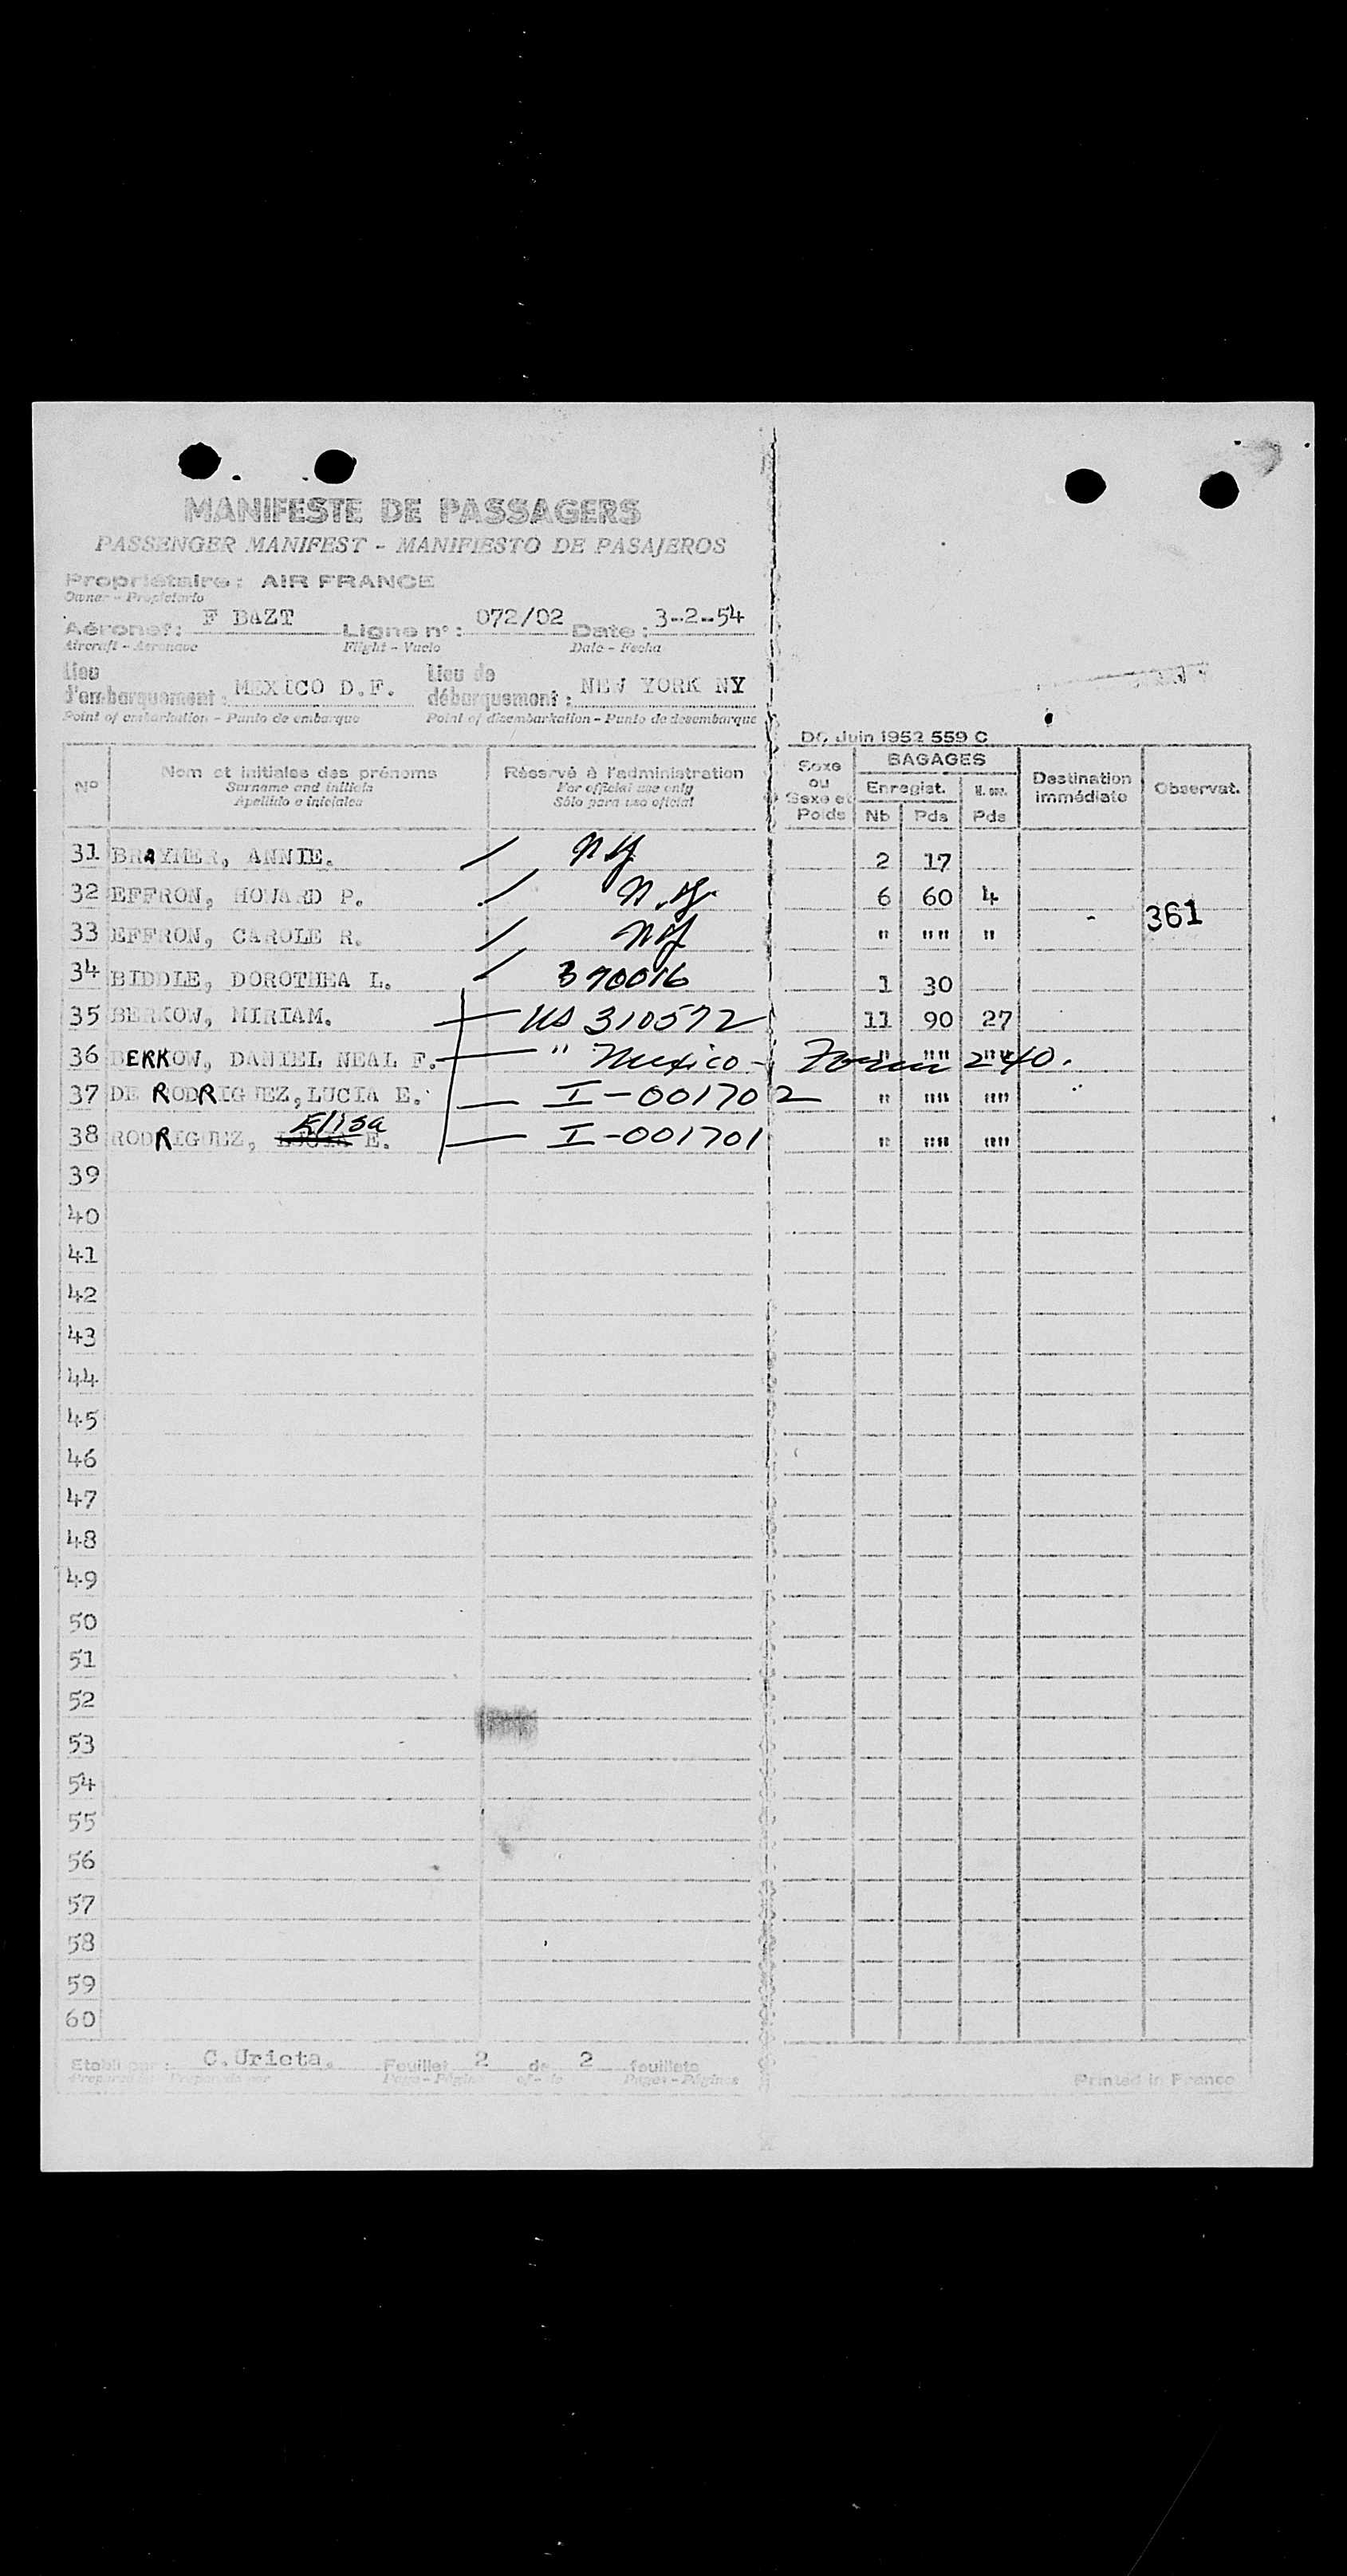 MANIFESTE DE PASSAGERS
PASSENGER MANIFEST - MANIFIESTO DE PASAJEROS
Propriétaire : AIR FRANCE
Owner - Propietario
Aéronef : F BAZT Ligne n° : 072/02 Date : 3-2-54
Aircraft - Aeronave Flight - Vuelo Date - Fecha
Lieu d'embarquement : MEXICO D.F. Lieu de débarquement : NEW YORK NY
Point of embarkation - Punto de embarque Point of disembarkation - Punto de desembarque
Dc. Juin 1952 559 C
N° Nom et initiales des prénoms Réservé à l'administration Sexe ou Sexe et Poids BAGAGES Destination immédiate Observat.
Surname and initials For official use only Enregist.
Apellido e iniciales Sólo para uso oficial Nb Pds Pds
31 BRAYMER, ANNIE. / NY 2 17
32 EFFRON, HOWARD P. / N.Y. 6 60 4
361
33 EFFRON, CAROLE R. / NY " "" "
34 BIDDLE, DOROTHEA L. / 370016 1 30
35 BERKOW, MIRIAM. — US 310572 11 90 27
36 BERKOW, DANIEL NEAL F. — " Mexico - Form 240. " "" ""
37 DE RODRIGUEZ, LUCIA E. — I-001702 " "" ""
Elisa
38 RODRIGUEZ, LUCIA E. — I-001701 " "" ""
39
40
41
42
43
44
45
46
47
48
49
50
51
52
53
54
55
56
57
58
59
60
Etabli par : C.Urieta. Feuillet 2 de 2 feuillets
Prepared by - Preparado por Page - Página of - de Pages - Páginas
Printed in France